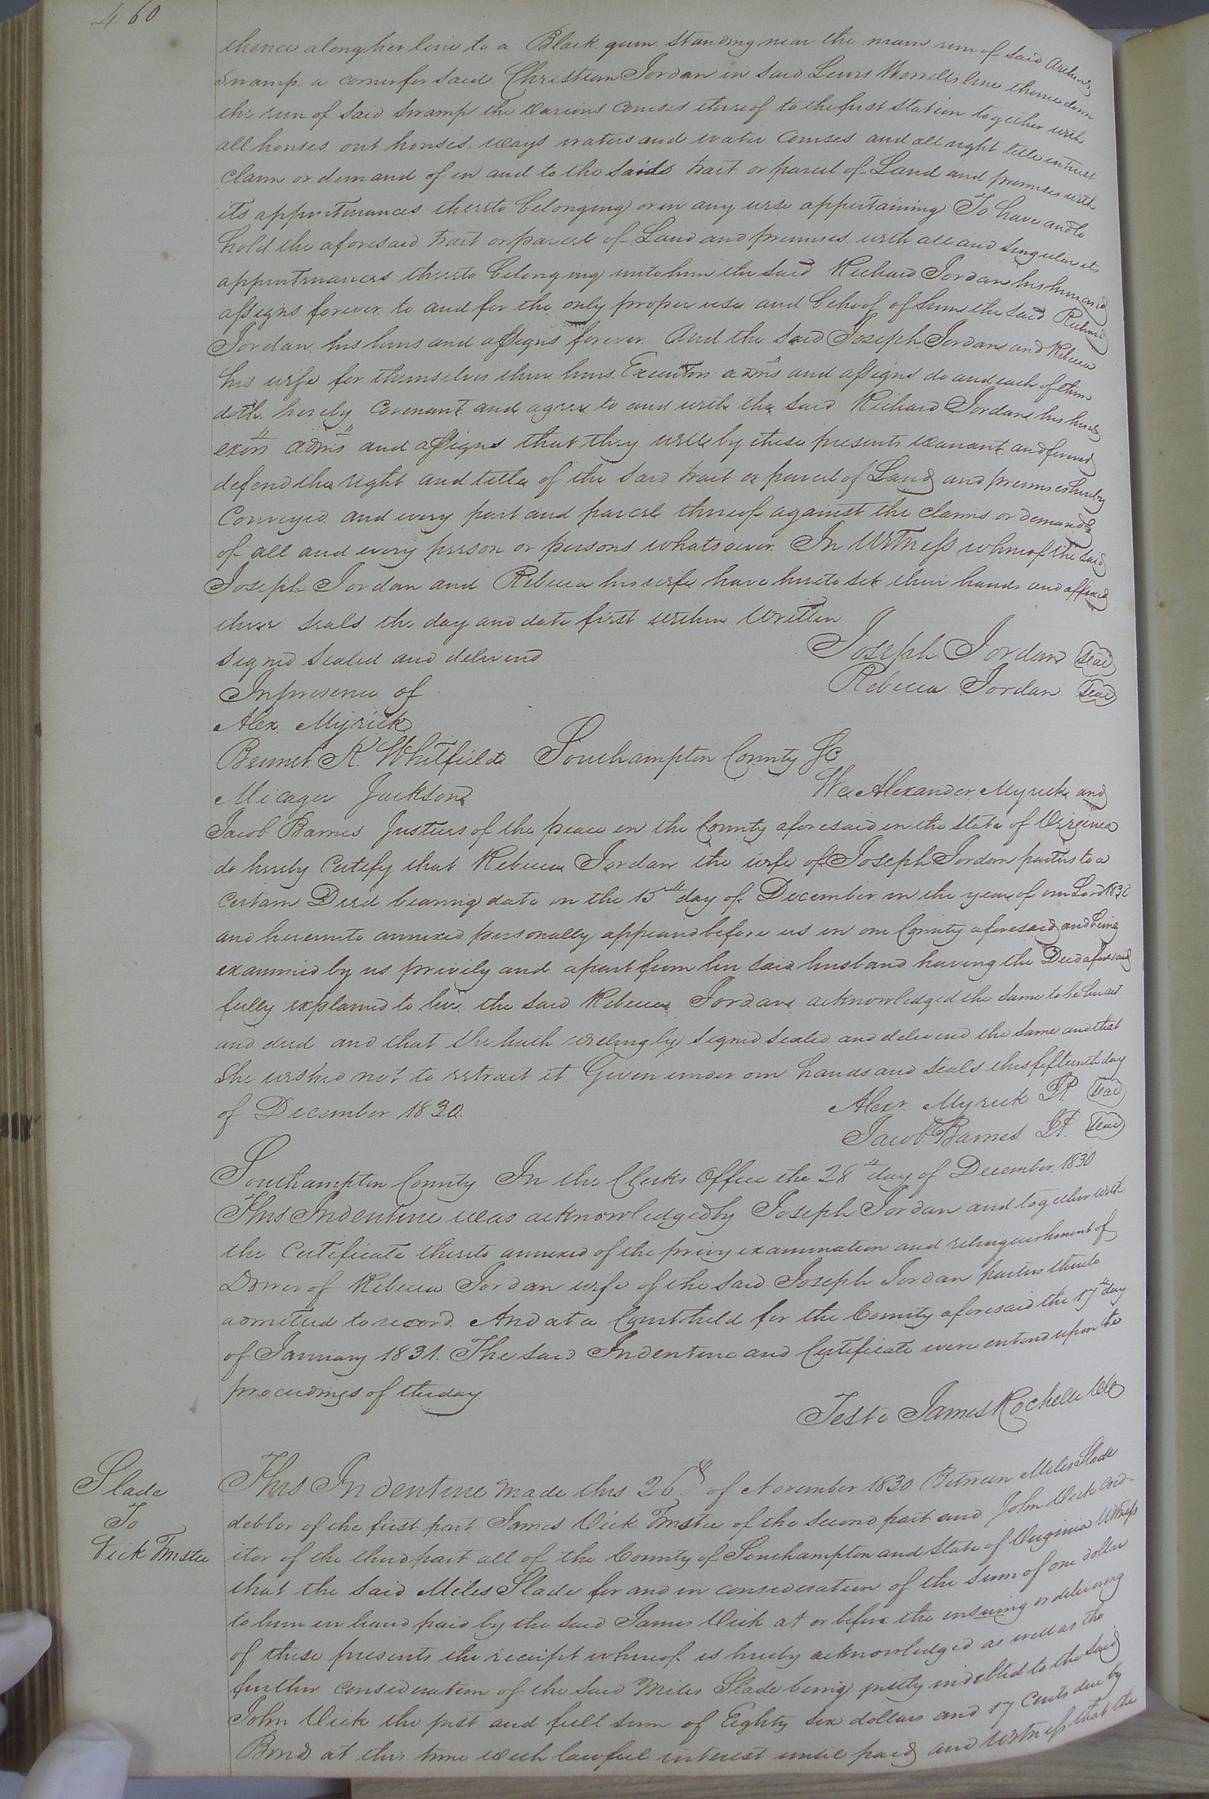 460
thence along her line to a Black gum standing near the main run of said
Swamp a corner for said Christian Jordan in said Lewis Worrells line thence down
the run of said Swamp the various courses thereof to the first Station together with
all houses out houses ways waters and water courses and all right title interest
claim or demand of in and to the said tract or parcel of Land and premises with
its appurtenances thereto belonging or in any wise appertaining To have and to
hold the aforesaid tract or parcel of Land and premises with all and singular its
appurtenances thereto belonging unto him the said Richard Jordan his heirs and
assigns forever to and for the only proper use and behoof of him the said Richard
Jordan his heirs and assigns forever. And the said Joseph Jordan and Rebecca
his wife for themselves their heirs Executors adms and assigns do and each of them
doth hereby Covenant and agree to and with the said Richard Jordan his heirs
exors adms and assigns that they will by these presents warrant and forever
defend the right and title of the said tract or parcel of Land and premises hereby
Conveyed and every part and parcel thereof against the claims or demands
of all and every person or persons whatsoever In Witness whereof the said
Joseph Jordan and Rebecca his wife have hereto set their hands and affixed
their seals the day and date first within Written
Signed Sealed and delivered
Joseph Jordan Seal
In presence of
Rebecca Jordan Seal
Alex. Myrick
Bennet K Whitfield
Southampton County Sc
Micager Jackson
We Alexander Myrick and
Jacob Barnes Justices of the peace in the County aforesaid in the State of Virginia
do hereby Certify that Rebecca Jordan the wife of Joseph Jordan parties to a
Certain Deed bearing date on the 15th day of December in the year of our Lord 1830
and hereunto annexed personally appeared before us in our County aforesaid and being
examined by us privily and apart from her said husband having the Deed aforesaid
fully explained to her, the said Rebecca Jordan acknowledged the same to be her act
and deed and that she hath willingly signed sealed and delivered the same and that
She wished not to retract it Given under our hands and seals this fifteenth day
of December 1830.
Alexr Myrick JP. Seal
Jacob Barnes JP. Seal
Southampton County In the Clerks Office the 28th day of December 1830
This Indenture was acknowledged by Joseph Jordan and together with
the Certificate thereto annexed of the privy examination and relinquishment of
Dower of Rebecca Jordan wife of the said Joseph Jordan parties thereto
admitted to record And at a Court held for the County aforesaid the 17th day
of January 1831. The said Indenture and Certificate were entered upon the
proceedings of the day
Teste James Rochelle Clk
Slade
To
Vick Trustee
This Indenture made this 26th of November 1830 Between Miles Slade
debtor of the first part James Vick Trustee of the second part and John Vick cred-
itor of the third part all of the County of Southampton and State of Virginia Witness
that the said Miles Slade for and in consideration of the Sum of one dollar
to him in hand paid by the said James Vick at or before the ensuing or delivering
of these presents the receipt whereof is hereby acknowledged as well as the
further consideration of the said Miles Slade being justly indebted to the said
John Vick the just and full sum of Eighty six dollars and 17 Cents due by
Bond at this time with lawful interest until paid and Witness that the